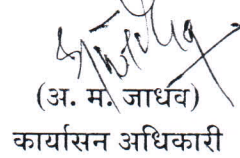 (अ. म. जाधव)
कार्यासन अधिकारी